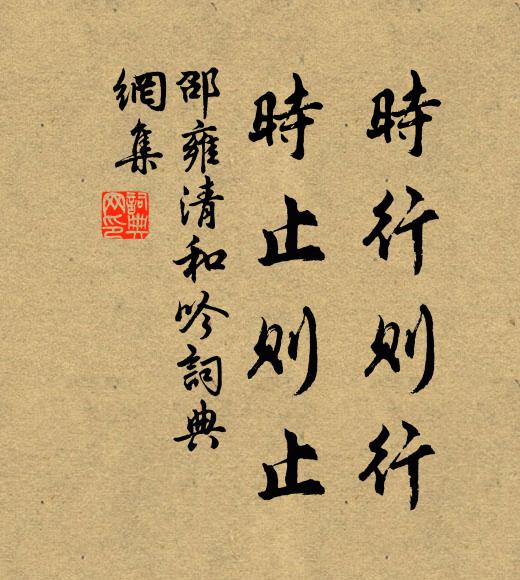 時行则行
時止则止
邵雍清和吟詞典
網集
詞典
网印